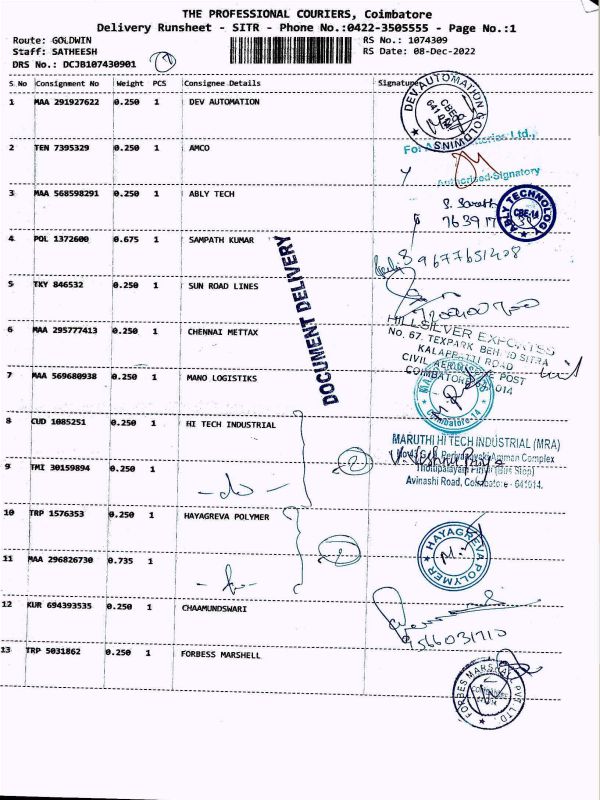 THE PROFESSIONAL COURIERS, Coimbatore
Delivery Runsheet - SITR - Phone No.:0422-3505555 - Page No.:1
Route: GOLDWIN
RS No.: 1074309
Staff: SATHEESH
RS Date: 08-Dec-2022
DRS No.: DCJB107430901
S No Consignment No Weight PCS Consignee Details Signature
1 MAA 291927622 0.250 1 DEV AUTOMATION
DEV AUTOMATION GOLDWINS
2 TEN 7395329 0.250 1 AMCO
Authorised Signatory
3 MAA 568598291 0.250 1 ABLY TECH
ABLY TECHNOLOGY
CBE-14
4 POL 1372600 0.675 1 SAMPATH KUMAR
9677651208
DOCUMENT DELIVERY
5 TKY 846532 0.250 1 SUN ROAD LINES
6 MAA 295777413 0.250 1 CHENNAI METTAX
HILLSILVER EXPORTSS
No. 67, TEXPARK BEHIND SITRA
KALAPPATTI ROAD
7 MAA 569680938 0.250 1 MANO LOGISTIKS
Coimbatore-14
8 CUD 1085251 0.250 1 HI TECH INDUSTRIAL
2
MARUTHI HI TECH INDUSTRIAL (MRA)
Avinashi Road, Coimbatore - 641014.
9 TMI 30159894 0.250 1
-do-
10 TRP 1576353 0.250 1 HAYAGREVA POLYMER
2
HAYAGREVA POLYMER
11 MAA 296826730 0.735 1
12 KUR 694393535 0.250 1 CHAAMUNDSWARI
9566031710
13 TRP 5031862 0.250 1 FORBESS MARSHELL
FORBES MARSHALL PVT. LTD.